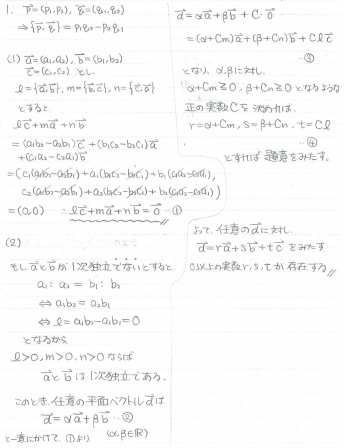 1. p⃗=(p₁,p₂), q⃗=(q₁,q₂)
⇒{p⃗, q⃗} = p₁q₂-p₂q₁
(1) a⃗=(a₁,a₂), b⃗=(b₁,b₂)
c⃗=(c₁,c₂) とし
l={a⃗,b⃗}, m={b⃗,c⃗}, n={c⃗,a⃗}
とすると
lc⃗+ma⃗+nb⃗
=(a₁b₂-a₂b₁)c⃗+(b₁c₂-b₂c₁)a⃗
+(c₁a₂-c₂a₁)b⃗
=(c₁(a₁b₂-a₂b₁)+a₁(b₁c₂-b₂c₁)+b₁(c₁a₂-c₂a₁),
c₂(a₁b₂-a₂b₁)+a₂(b₁c₂-b₂c₁)+b₂(c₁a₂-c₂a₁))
=(0,0) ∴lc⃗+ma⃗+nb⃗=0⃗ ①
(2)
もしa⃗とb⃗が1次独立でないとすると、
a₁:a₂=b₁:b₂
⇔a₁b₂=a₂b₁
⇔l=a₁b₂-a₂b₁=0
となるから、
l>0,m>0,n>0ならば
a⃗とb⃗は1次独立である。
このとき、任意の平面ベクトルd⃗は
d⃗=αa⃗+βb⃗ ②
(α,β∈ℝ)
と一意にかけて、①より
d⃗=αa⃗+βb⃗+C・0⃗
=(α+Cm)a⃗+(β+Cn)b⃗+Clc⃗
③
となり、α,βに対し、
α+Cm≧0, β+Cn≧0となるような
正の実数Cを決めれば、
r=α+Cm, s=β+Cn, t=Cl
④
とすれば題意をみたす。
よって、任意のd⃗に対し、
d⃗=ra⃗+sb⃗+tc⃗をみたす
0以上の実数r,s,tが存在する。